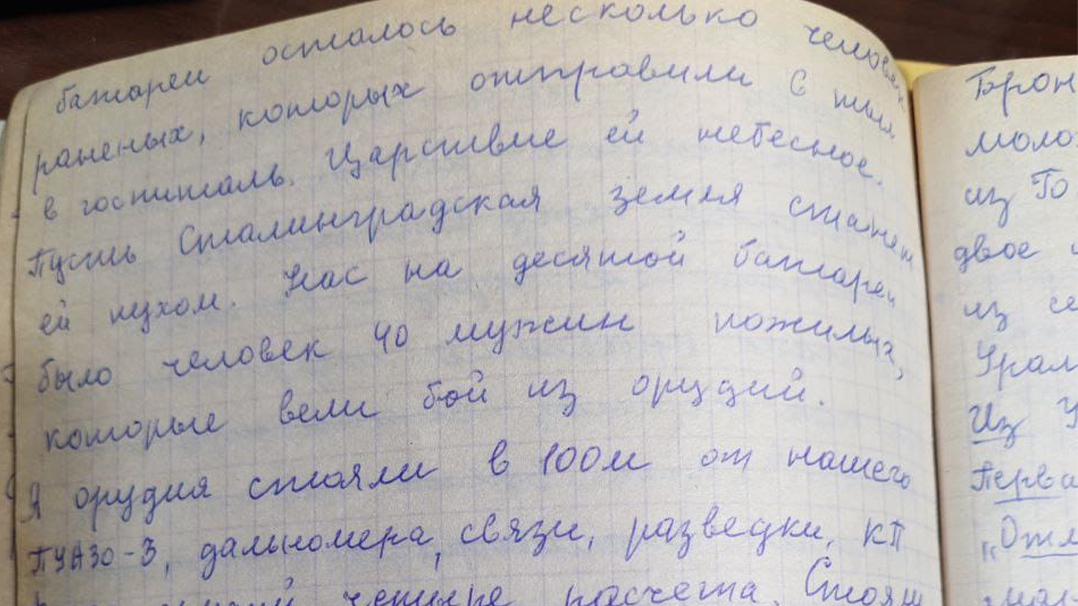 батареи осталось несколько человек
раненых, которых отправили в тыл
в госпиталь. Царствие ей небесное.
Пусть Сталинградская земля станет
ей пухом. Нас на десятой батареи
было человек 40 мужчин пожилых,
которые вели бой из орудий.
А орудия стояли в 100м от нашего
ПУАЗО-3, дальномера, связи, разведки, КП
четыре расчета. Стоял
Брон
молоз
из Го
двое
из се
Урал
Из У
Перва
"Отл